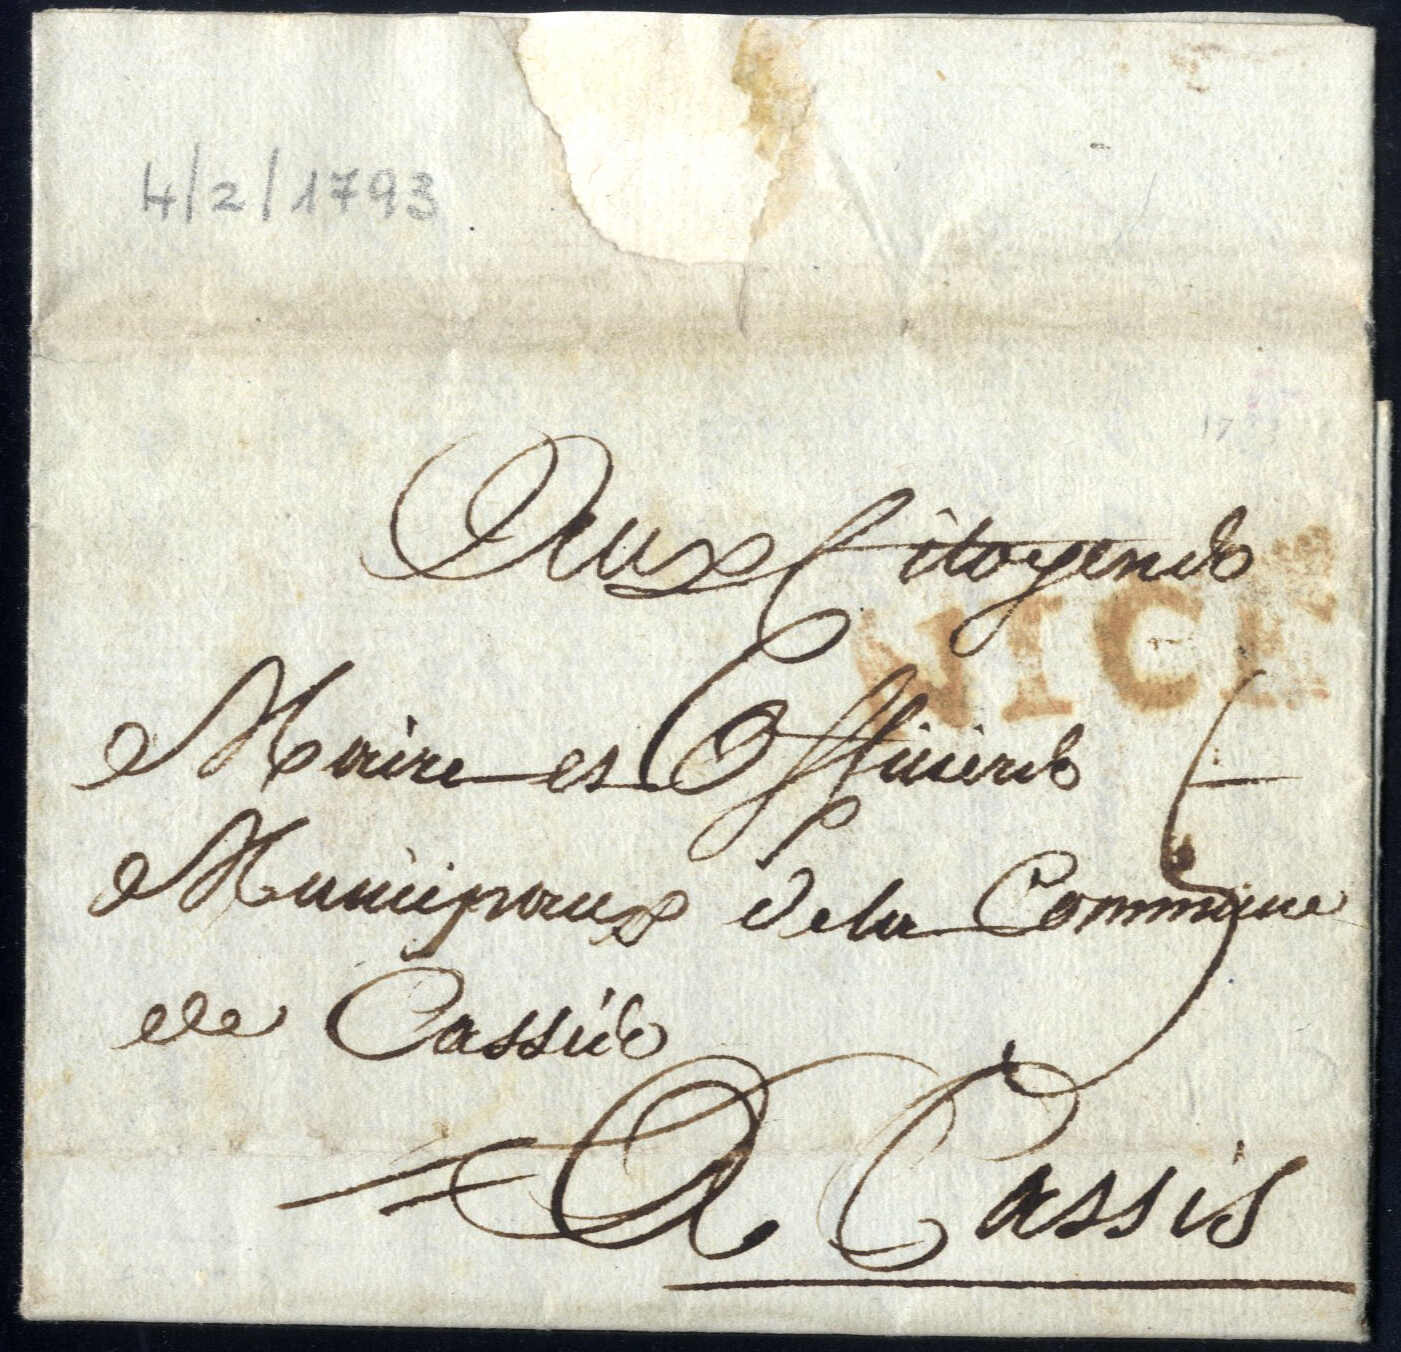 4/2/1793
Aux Citoyens
NICE
Maire et Officiers
Municipaux de la Commune
de Cassis
A Cassis